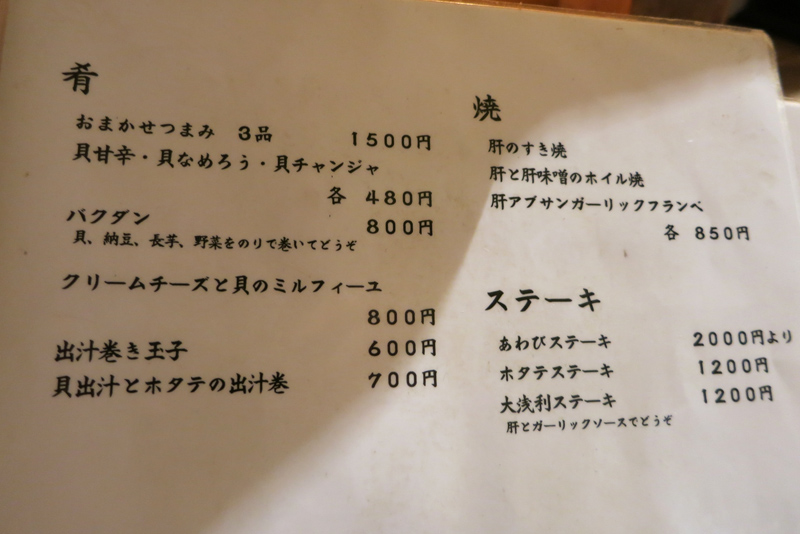 肴
おまかせつまみ 3品 1500円
貝甘辛・貝なめろう・貝チャンジャ
各 480円
バクダン 800円
貝、納豆、長芋、野菜をのりで巻いてどうぞ
クリームチーズと貝のミルフィーユ
800円
出汁巻き玉子 600円
貝出汁とホタテの出汁巻 700円
焼
肝のすき焼
肝と肝味噌のホイル焼
肝アブサンガーリックフランベ
各 850円
ステーキ
あわびステーキ 2000円より
ホタテステーキ 1200円
大浅利ステーキ 1200円
肝とガーリックソースでどうぞ